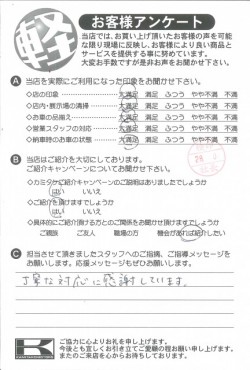 軽
お客様アンケート
当店では、お買い上げ頂いたお客様の声を可能
な限り現場に反映し、お客様により良い商品と
サービスを提供する事に努めています。
大変お手数ですが是非お声をお聞かせ下さい。
A 当店を実際にご利用になった印象をお聞かせ下さい。
◇店の印象 大満足 満足 ふつう やや不満 不満
◇店内・展示場の清掃 大満足 満足 ふつう やや不満 不満
◇お車の品揃え 大満足 満足 ふつう やや不満 不満
◇営業スタッフの対応 大満足 満足 ふつう やや不満 不満
◇納車時のお車の状態 大満足 満足 ふつう やや不満 不満
B 当店はご紹介を大切にしております。
ご紹介キャンペーンについてお聞かせ下さい。
◇カミタからご紹介キャンペーンのご説明はありましたでしょうか
はい いいえ
◇ご紹介を頂けますでしょうか
はい いいえ
◇具体的にご紹介頂ける方とのご関係をお聞かせ頂けますでしょうか
ご親戚 ご友人 職場の方 機会があれば紹介したい
C 担当させて頂きましたスタッフへのご指摘、ご指導メッセージを
お願いします。応援メッセージもぜひお願いします。
丁寧な対応に感謝しています。
K
ご協力に心よりお礼を申し上げます。
今後とも宜しくお引き立てご愛顧の程お願い申し上げます。
またのご来店を心からお待ちしております。